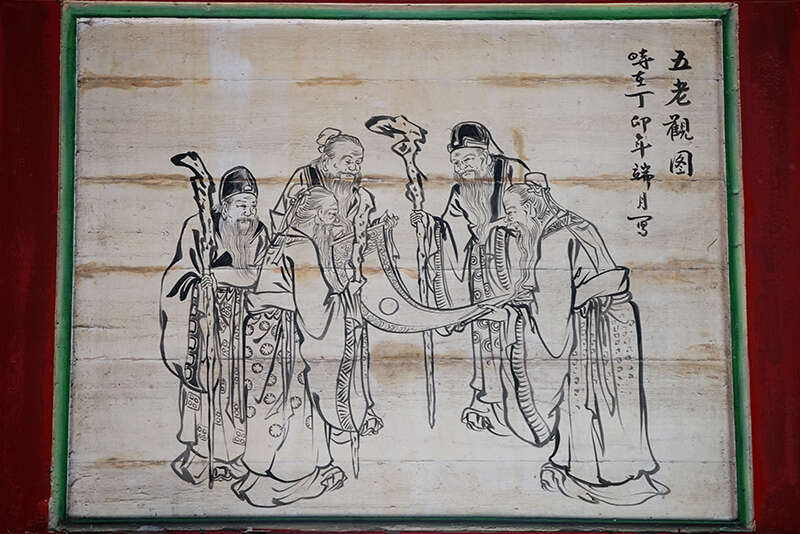 五老觀图
時在丁卯年端月写